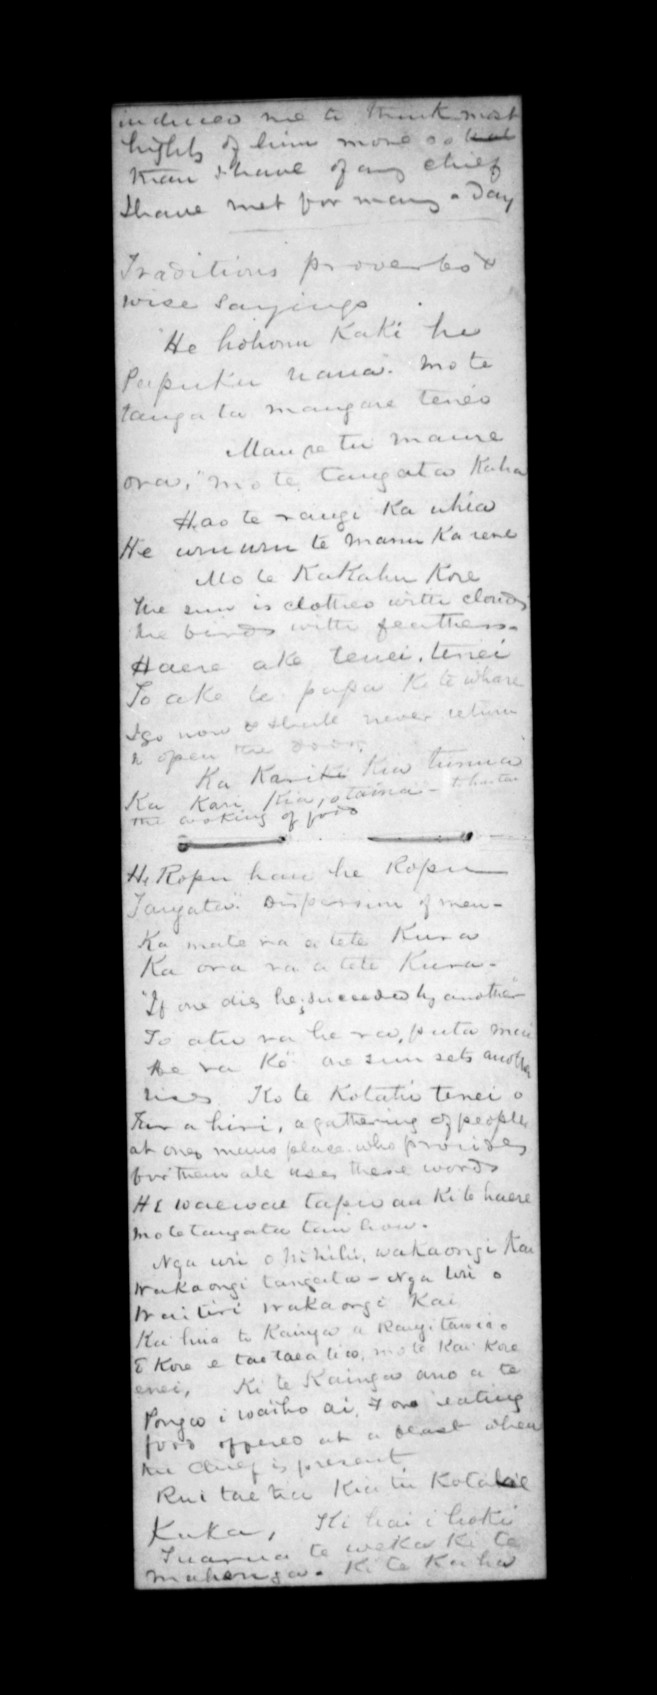 induced me to think most
highly of him more so
than I have of any chief
I have met for many a day
Traditions proverbs &
wise sayings
"He hohonu Kaki he
Papuku uaua". mo te
tangata mangare teneo
Maure tu maure
ora," mo te tangata Kaha
Hao te rangi Ka uhia
He uruuru te manu Ka rere
Mo te Kakahu Kore
The sun is clothed with clouds
the birds with feathers.
Haere ake tenei, tenei
To ake te papa Ki te whare
I go now & shall never return
to open the door.
Ka Kariki Kia tunua
Ka Kari Kia, otaina -
the cooking of food
He Ropu hau he Ropu
Tangata". Dispersion of men -
Ka mate ra a tete Kura
Ka ora ra a tete Kura -
"If one dies he, succeeded by another"
To atu ra he ra, puta mai
he ra Ko" one sun sets another
rises Ko te Kotahi tenei o
a hiri, a gathering of people
at ones mans place. who provides
for them all uses these words
HE waewae tapu au Ki te haere
mo te tangata tau hou.
Nga uri o wakaongi Kai
Wakaongi tangata - Nga Uri o
Waitiri Wakaongi Kai
Ka hua te Kainga a Rangitauia.
E Kore e mo te Kai Kore
enei, Ki te Kainga ano a te
Ponga i waiho ai, eating
food offered at a feast when
the Chief is present
Rui tae tu Kotahi
Kuka, Hi hai i hoki
Tuarua te weka Ki te
mahanga. Ki te Kaha